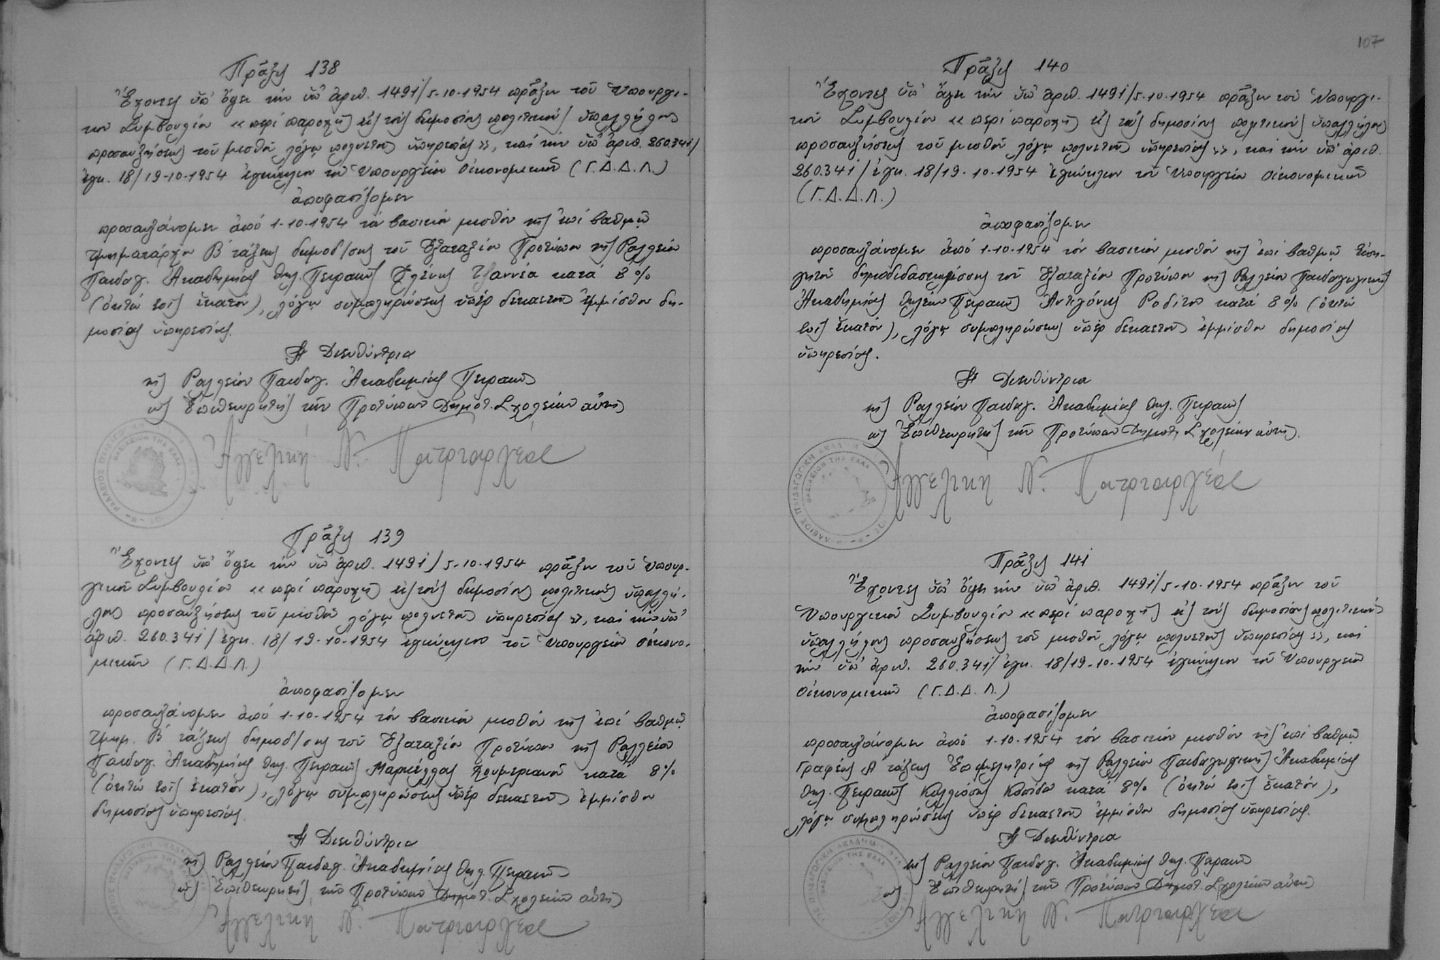 Πρᾶξις 138
Ἔχοντες ὑπ' ὄψει τὴν ὑπ' ἀριθ. 1491/5-10-1954 πρᾶξιν τοῦ Ὑπουργι-
κοῦ Συμβουλίου «περί παροχῆς εἰς τούς δημοσίους πολιτικούς ὑπαλλήλους
προσαυξήσεως τοῦ μισθοῦ λόγῳ πολυετοῦς ὑπηρεσίας», καί τήν ὑπ' ἀριθ. 260.341/
ἐγκ. 18/19-10-1954 ἐγκύκλιον τοῦ Ὑπουργείου Οἰκονομικῶν (Γ.Δ.Δ.Λ)
ἀποφασίζομεν
προσαυξάνομεν ἀπό 1-10-1954 τόν βασικόν μισθόν τῆς ἐπί βαθμῷ
τμηματάρχου Β΄ τάξεως δημοδ/σης τοῦ Ἑξαταξίου Προτύπου τῆς Ραλλείου
Παιδαγ. Ἀκαδημίας Θηλ. Πειραιῶς Ἑλένης Τζαννέα κατά 8%
(ὀκτώ τοῖς ἑκατόν), λόγῳ συμπληρώσεως ὑπέρ δεκαετοῦς ἐμμίσθου δη-
μοσίας ὑπηρεσίας.
Ἡ Διευθύντρια
τῆς Ραλλείου Παιδαγ. Ἀκαδημίας Πειραιῶς
ὡς Ἐπιθεωρητής τῶν Προτύπων Δημοτ. Σχολείων αὐτῆς
Ἀγγελική Ν. Πατριαρχέας
Πρᾶξις 139
Ἔχοντες ὑπ' ὄψει τήν ὑπ' ἀριθ. 1491/5-10-1954 πρᾶξιν τοῦ Ὑπουρ-
γικοῦ Συμβουλίου «περί παροχῆς εἰς τούς δημοσίους πολιτικούς ὑπαλλή-
λους προσαυξήσεως τοῦ μισθοῦ λόγῳ πολυετοῦς ὑπηρεσίας», καί τήν ὑπ'
ἀριθ. 260.341/ἐγκ. 18/19-10-1954 ἐγκύκλιον τοῦ Ὑπουργείου Οἰκονο-
μικῶν (Γ.Δ.Δ.Λ)
ἀποφασίζομεν
προσαυξάνομεν ἀπό 1-10-1954 τόν βασικόν μισθόν τῆς ἐπί βαθμῷ
τμημ. Β΄ τάξεως δημοδ/σης τοῦ Ἑξαταξίου Προτύπου τῆς Ραλλείου
Παιδαγ. Ἀκαδημίας Θηλ. Πειραιῶς Μαρκέλλας κατά 8%
(ὀκτώ τοῖς ἑκατόν), λόγῳ συμπληρώσεως ὑπέρ δεκαετοῦς ἐμμίσθου
δημοσίας ὑπηρεσίας.
Ἡ Διευθύντρια
τῆς Ραλλείου Παιδαγ. Ἀκαδημίας Θηλ. Πειραιῶς
ὡς Ἐπιθεωρητής τῶν Προτύπων Δημοτ. Σχολείων αὐτῆς
Ἀγγελική Ν. Πατριαρχέας
107
Πρᾶξις 140
Ἔχοντες ὑπ' ὄψει τήν ὑπ' ἀριθ. 1491/5-10-1954 πρᾶξιν τοῦ Ὑπουργι-
κοῦ Συμβουλίου «περί παροχῆς εἰς τούς δημοσίους πολιτικούς ὑπαλλήλους
προσαυξήσεως τοῦ μισθοῦ λόγῳ πολυετοῦς ὑπηρεσίας», καί τήν ὑπ' ἀριθ.
260.341/ἐγκ. 18/19-10-1954 ἐγκύκλιον τοῦ Ὑπουργείου Οἰκονομικῶν
(Γ.Δ.Δ.Λ.)
ἀποφασίζομεν
προσαυξάνομεν ἀπό 1-10-1954 τόν βασικόν μισθόν τῆς ἐπί βαθμῷ Εἰση-
γητοῦ δημοδιδασκαλίσσης τοῦ Ἑξαταξίου Προτύπου τῆς Ραλλείου Παιδαγωγικῆς
Ἀκαδημίας Θηλέων Πειραιῶς Ἀντιγόνης Ροδίτου κατά 8% (ὀκτώ
τοῖς ἑκατόν), λόγῳ συμπληρώσεως ὑπέρ δεκαετοῦς ἐμμίσθου δημοσίας
ὑπηρεσίας.
Ἡ Διευθύντρια
τῆς Ραλλείου Παιδαγ. Ἀκαδημίας Θηλ. Πειραιῶς
ὡς Ἐπιθεωρητής τῶν Προτύπων Δημοτ. Σχολείων αὐτῆς.
Ἀγγελική Ν. Πατριαρχέας
Πρᾶξις 141
Ἔχοντες ὑπ' ὄψει τήν ὑπ' ἀριθ. 1491/5-10-1954 πρᾶξιν τοῦ
Ὑπουργικοῦ Συμβουλίου «περί παροχῆς εἰς τούς δημοσίους πολιτικούς
ὑπαλλήλους προσαυξήσεως τοῦ μισθοῦ λόγῳ πολυετοῦς ὑπηρεσίας», καί
τήν ὑπ' ἀριθ. 260.341/ἐγκ. 18/19-10-1954 ἐγκύκλιον τοῦ Ὑπουργείου
Οἰκονομικῶν (Γ.Δ.Δ.Λ.)
ἀποφασίζομεν
προσαυξάνομεν ἀπό 1-10-1954 τόν βασικόν μισθόν τῆς ἐπί βαθμῷ
Γραφέως Α τάξεως τῆς Ραλλείου Παιδαγωγικῆς Ἀκαδημίας
Θηλ. Πειραιῶς κατά 8% (ὀκτώ τοῖς ἑκατόν),
λόγῳ συμπληρώσεως ὑπέρ δεκαετοῦς ἐμμίσθου δημοσίας ὑπηρεσίας.
Ἡ Διευθύντρια
τῆς Ραλλείου Παιδαγ. Ἀκαδημίας Θηλ. Πειραιῶς
ὡς Ἐπιθεωρητής τῶν Προτύπων Δημοτ. Σχολείων αὐτῆς
Ἀγγελική Ν. Πατριαρχέας